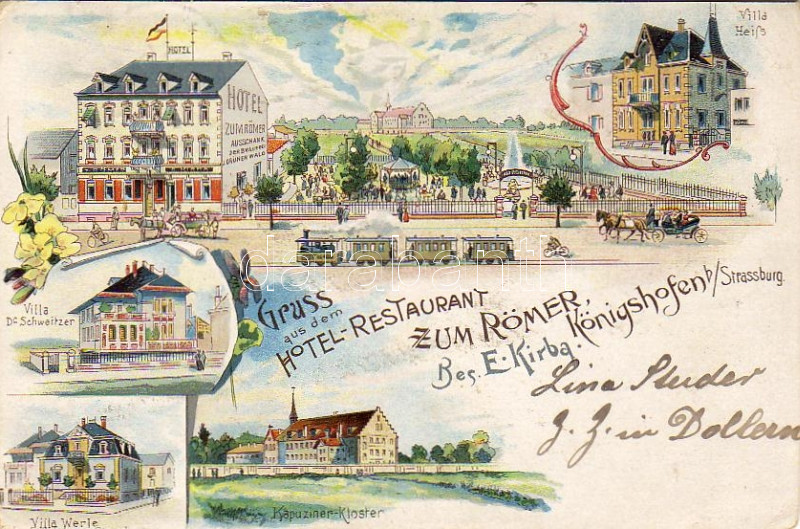 Villa
Heiß
HOTEL
HOTEL
ZUM RÖMER
AUSSCHANK
GRÜNER WALD
Villa
Dr Schweitzer
Gruss
aus dem
HOTEL-RESTAURANT
ZUM RÖMER,
Königshofen b/Strassburg.
Bes. E. Kirba.
Lina Studer
z. Z. in Dollern
Kapuziner-Kloster
Villa Werle
darabanth